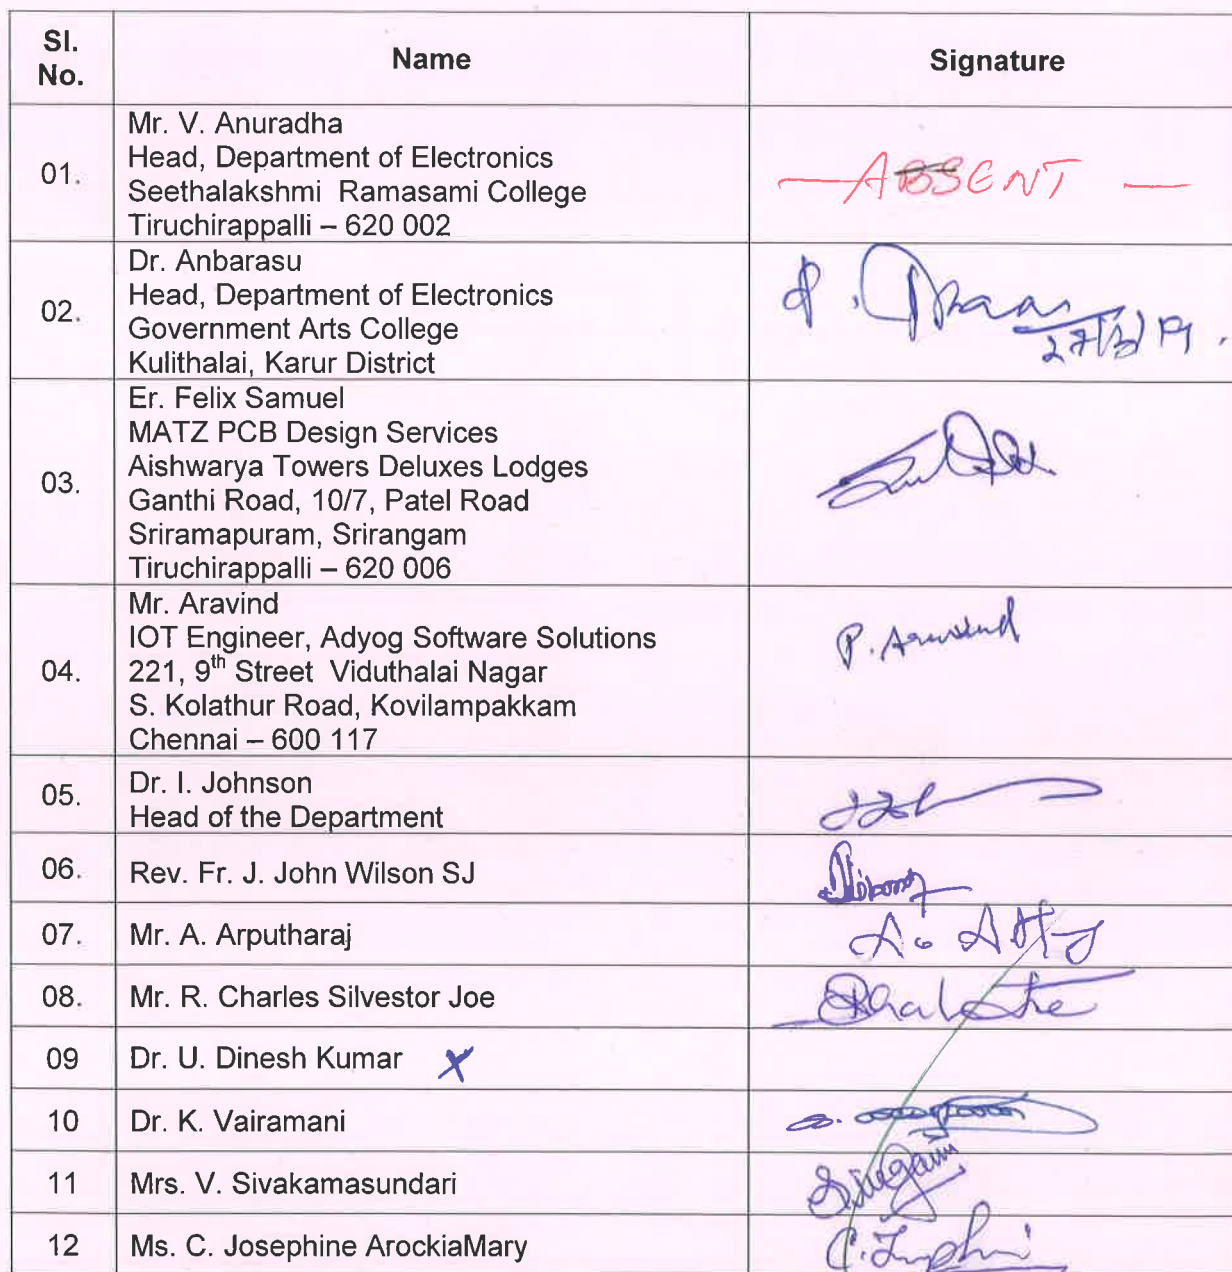 Sl.
No.
Name
Signature
01.
Mr. V. Anuradha
Head, Department of Electronics
Seethalakshmi Ramasami College
Tiruchirappalli – 620 002
— ABSENT —
02.
Dr. Anbarasu
Head, Department of Electronics
Government Arts College
Kulithalai, Karur District
03.
Er. Felix Samuel
MATZ PCB Design Services
Aishwarya Towers Deluxes Lodges
Ganthi Road, 10/7, Patel Road
Sriramapuram, Srirangam
Tiruchirappalli – 620 006
04.
Mr. Aravind
IOT Engineer, Adyog Software Solutions
221, 9th Street Viduthalai Nagar
S. Kolathur Road, Kovilampakkam
Chennai – 600 117
P. Aravind
05.
Dr. I. Johnson
Head of the Department
06.
Rev. Fr. J. John Wilson SJ
07.
Mr. A. Arputharaj
08.
Mr. R. Charles Silvestor Joe
09
Dr. U. Dinesh Kumar X
10
Dr. K. Vairamani
11
Mrs. V. Sivakamasundari
12
Ms. C. Josephine ArockiaMary